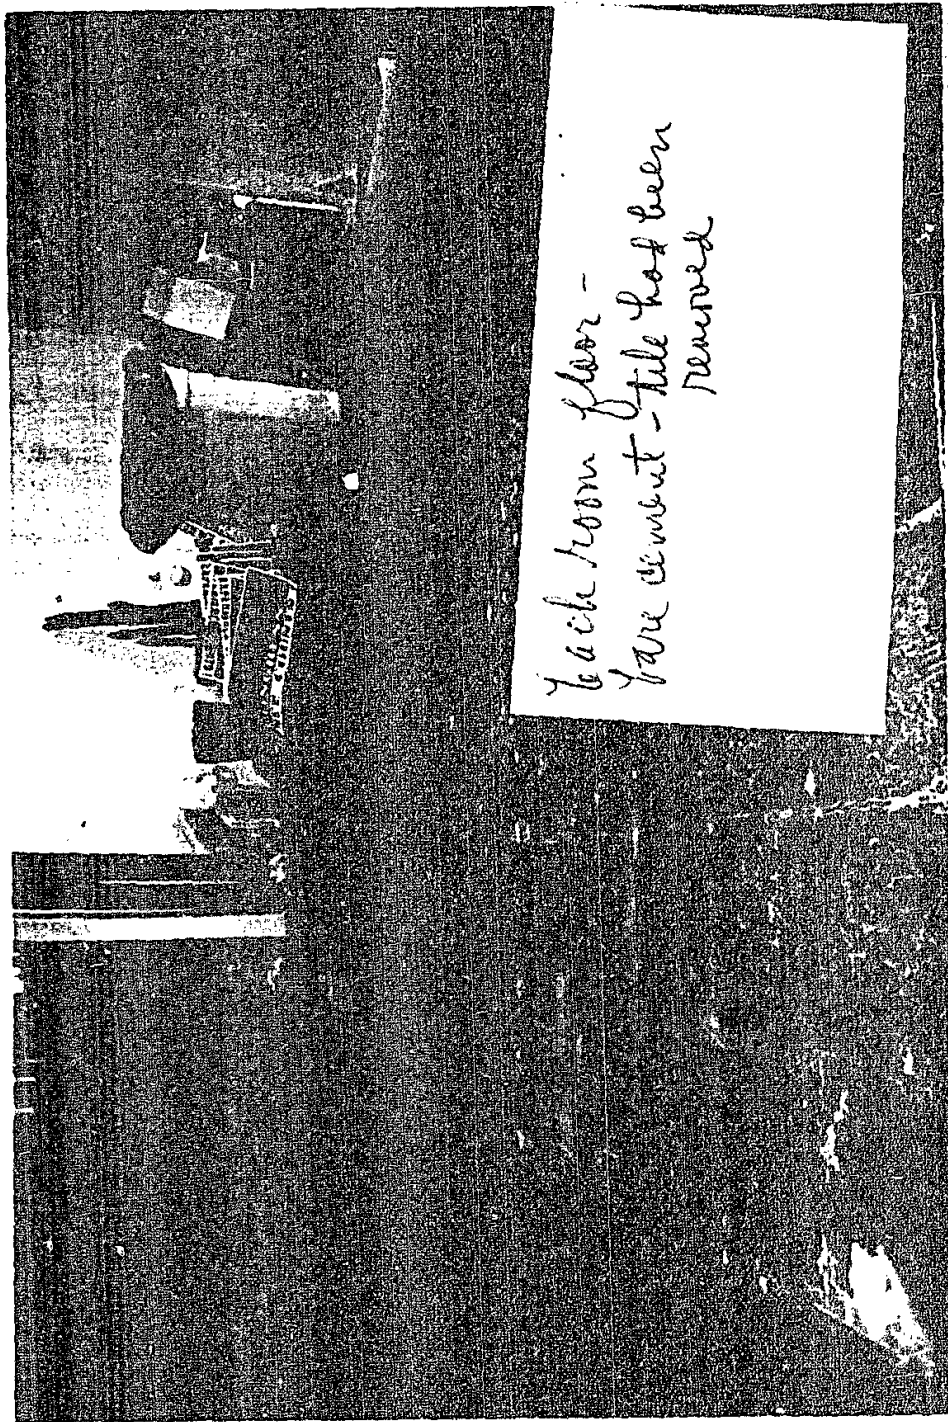 back room floor -
bare cement - tile had been
removed